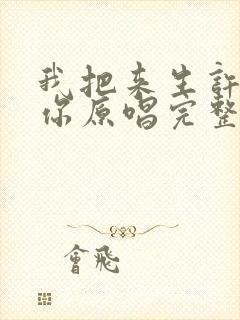 我把来生許
你原唱完整
會飛